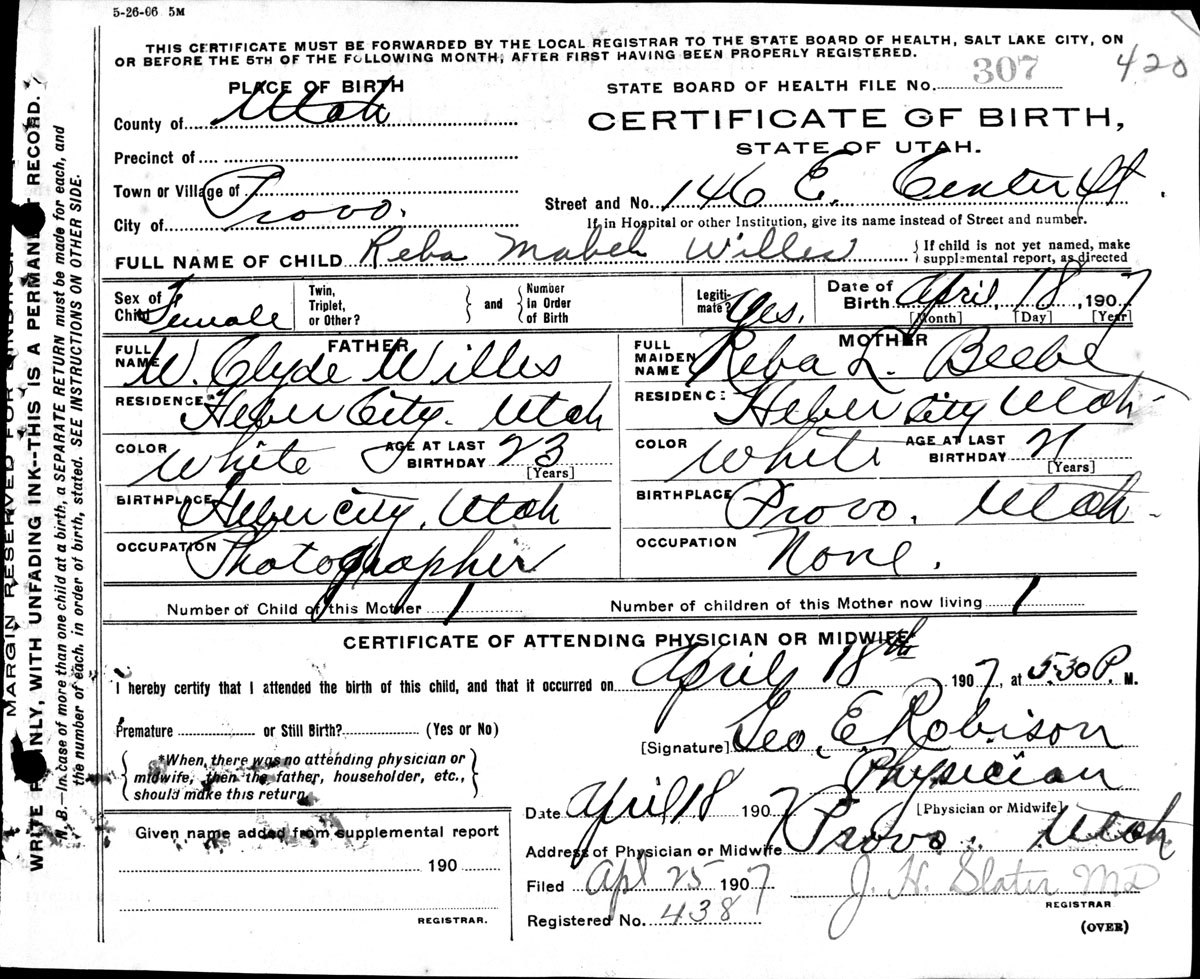 5-26-06 5M
THIS CERTIFICATE MUST BE FORWARDED BY THE LOCAL REGISTRAR TO THE STATE BOARD OF HEALTH, SALT LAKE CITY, ON
OR BEFORE THE 5TH OF THE FOLLOWING MONTH, AFTER FIRST HAVING BEEN PROPERLY REGISTERED.
420
PLACE OF BIRTH
STATE BOARD OF HEALTH FILE No. 307
County of Utah
CERTIFICATE OF BIRTH,
STATE OF UTAH.
Precinct of
Town or Village of
Street and No. 146 E. Center St.
City of Provo.
If in Hospital or other Institution, give its name instead of Street and number.
FULL NAME OF CHILD Reba Mabel Willes
If child is not yet named, make
supplemental report, as directed
Sex of Child Female
Twin, Triplet, or Other? } and { Number In Order of Birth
Legitimate? Yes.
Date of Birth April, 18, 1907
[Month] [Day] [Year]
FATHER
FULL NAME W. Clyde Willes
RESIDENCE Heber City. Utah
COLOR White AGE AT LAST BIRTHDAY 23 [Years]
BIRTHPLACE Heber city, Utah
OCCUPATION Photographer
MOTHER
FULL MAIDEN NAME Reba L. Beebe
RESIDENCE Heber City Utah
COLOR White AGE AT LAST BIRTHDAY 21 [Years]
BIRTHPLACE Provo. Utah
OCCUPATION None.
Number of Child of this Mother 1 Number of children of this Mother now living 1
CERTIFICATE OF ATTENDING PHYSICIAN OR MIDWIFE
I hereby certify that I attended the birth of this child, and that it occurred on April 18th 1907, at 5:30 P. M.
Premature or Still Birth? (Yes or No)
[Signature] Geo. E Robison
*When, there was no attending physician or
midwife, then the father, householder, etc.,
should make this return
Physician
[Physician or Midwife]
Date April 18 1907
Address of Physician or Midwife Provo. Utah
Given name added from supplemental report
190
REGISTRAR.
Filed Apl 25 1907
J. H. Slater MD
REGISTRAR
Registered No. 438
(OVER)
MARGIN RESERVED FOR BINDING.
WRITE PLAINLY, WITH UNFADING INK--THIS IS A PERMANENT RECORD.
N. B.—In case of more than one child at a birth, a SEPARATE RETURN must be made for each, and
the number of each, in order of birth, stated. SEE INSTRUCTIONS ON OTHER SIDE.